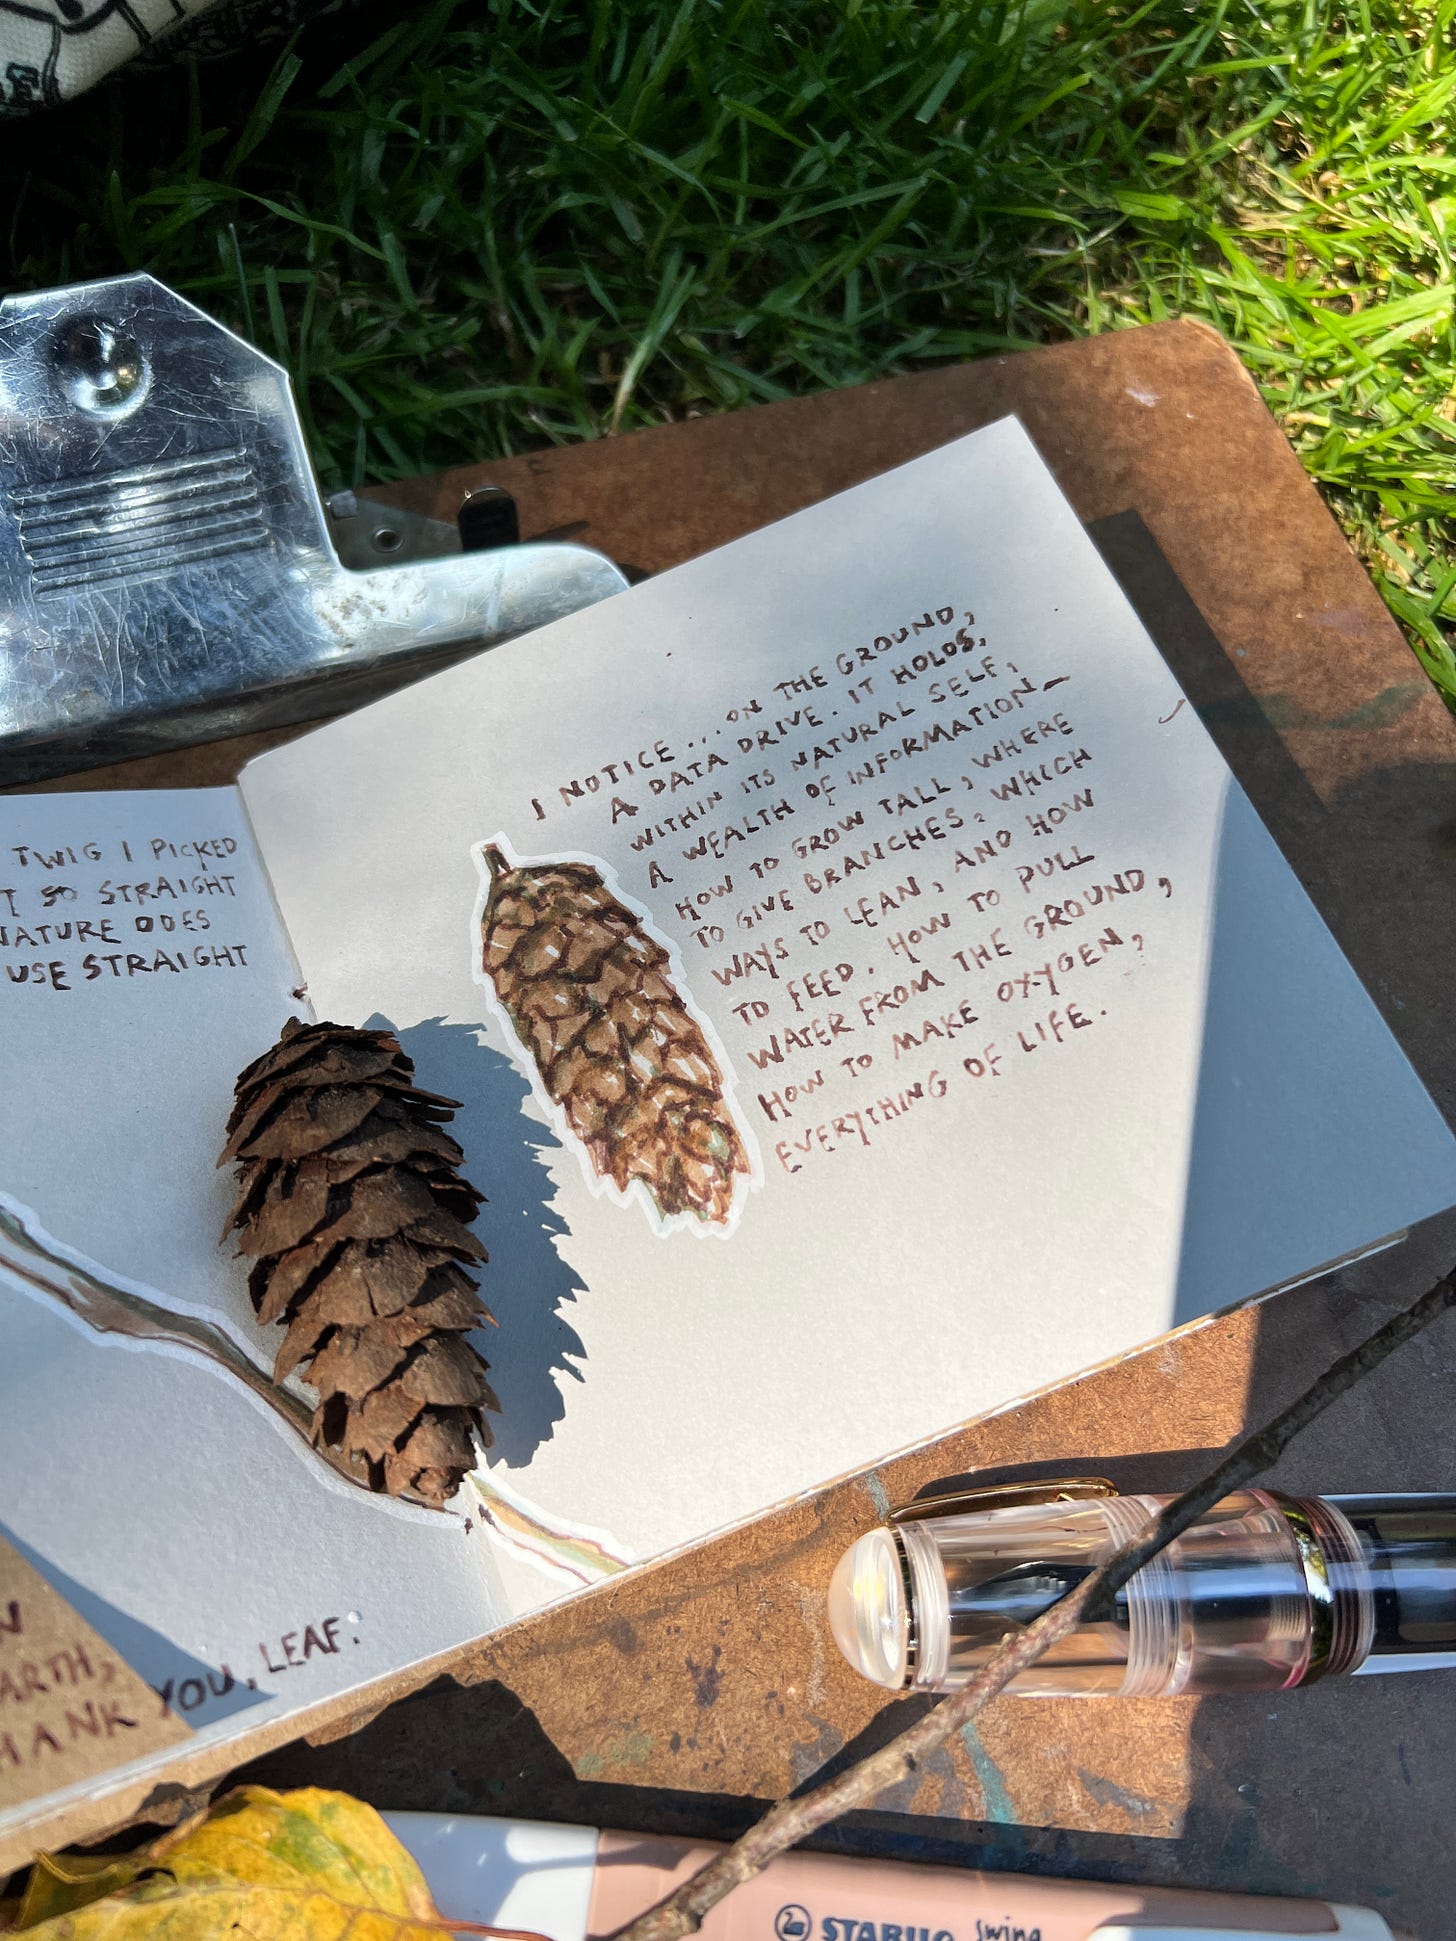 TWIG I PICKED
SO STRAIGHT
NATURE DOES
USE STRAIGHT
I NOTICE... ON THE GROUND,
A DATA DRIVE. IT HOLDS,
WITHIN ITS NATURAL SELF,
A WEALTH OF INFORMATION—
HOW TO GROW TALL, WHERE
TO GIVE BRANCHES, WHICH
WAYS TO LEAN, AND HOW
TO FEED. HOW TO PULL
WATER FROM THE GROUND,
HOW TO MAKE OXYGEN,
EVERYTHING OF LIFE.
THANK YOU, LEAF.
STABILO swing